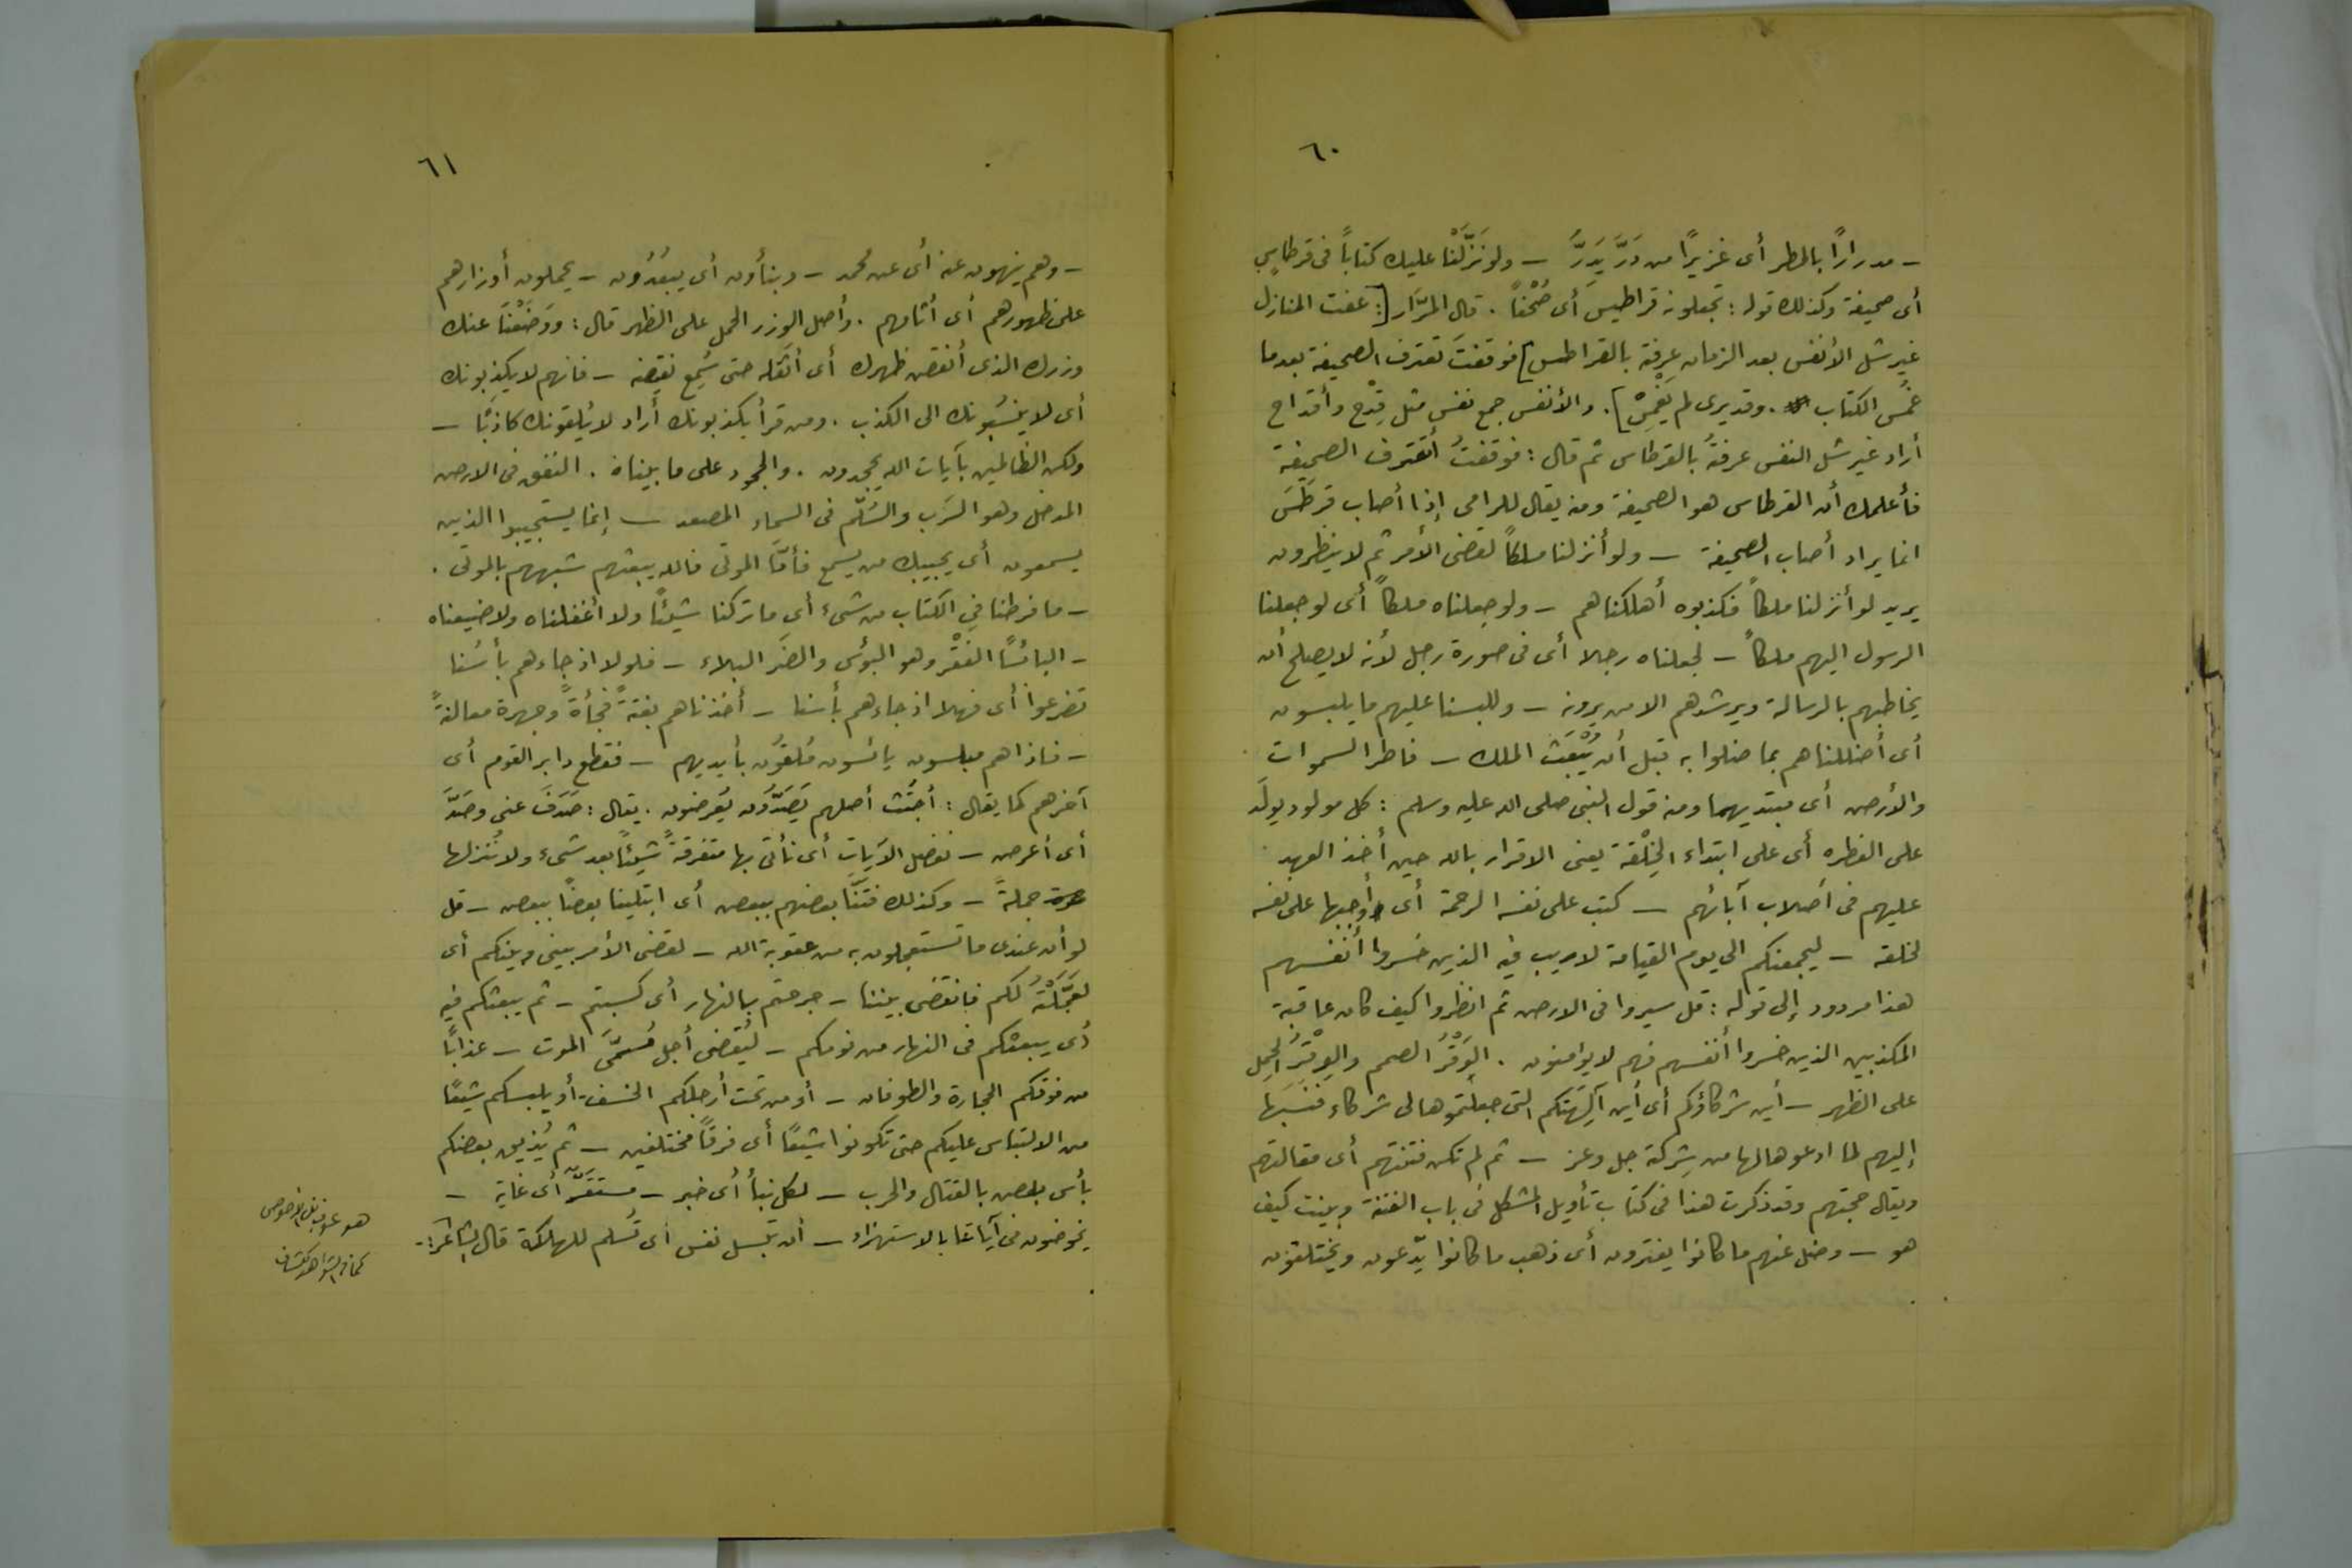 ٦٠
ـ مدرارًا بالمطر أى غزيرًا من دَرَّ يَدِرُّ ـ ولو نَزَّلْنا عليك كتاباً فى قرطاسٍ
أى صحيفة وكذلك قوله : تجعلونه قراطيسَ أى صُحُفاً . قال المرّار [: عفت المنازل
غير مثل الأنفس بعد الزمان عرفته بالقراطس ] فوقفتَ تعترف الصحيفة بعدما
عُمس الكتاب . وقد يرى لم يَعْمِسْ ] . والأنفس جمع نفس مثل قِدْح وأقداح
أراد غير مثل النفس عرفتُه بالقرطاس ثم قال : فوقفتُ أعترف الصحيفة
فأعلمك أن القرطاس هو الصحيفة ومنه يقال للرامى إذا أصاب قرطَسَ
انما يراد أصاب الصحيفة ـ ولو أنزلنا ملكاً لقضى الأمر ثم لا ينظرون
يريد لو أنزلنا ملكاً فكذبوه أهلكناهم ـ ولو جعلناه ملكاً أى لو جعلنا
الرسول اليهم ملكاً ـ لجعلناه رجلا أى فى صورة رجل لأنه لا يصلح أن
يخاطبهم بالرسالة ويرشدهم الا من يرونه ـ وللبسنا عليهم ما يلبسون
أى أضللناهم بما ضلوا به قبل أن يُبْعَث الملك ـ فاطر السموات
والأرض أى مبتديهما ومنه قول النبى صلى الله عليه وسلم : كل مولود يولَد
على الفطره أى على ابتداء الخِلْقة يعنى الاقرار بالله حين أخذ العهد
عليهم فى أصلاب آبائهم ـ كتب على نفسه الرحمة أى أوجبها على نفسه
لخلقه ـ ليجمعنكم الى يوم القيامة لا ريب فيه الذين خسروا أنفسهم
هذا مردود إلى قوله : قل سيروا فى الارض ثم انظروا كيف كان عاقبة
المكذبين الذين خسروا أنفسهم فهم لا يؤمنون . الوَقْرُ الصمم والوِقْرُ الحِمل
على الظهر ـ أين شركاؤكم أى أين آلِهَتكم التى جعلتموها لى شركاء فنسبَها
إليهم لما ادعوها لها من شِركة جل وعز ـ ثم لم تكن فتنتهم أى مقالتهم
ويقال حجتهم وقد ذكرت هذا فى كتاب تأويل المشكل فى باب الفتنة وبينت كيف
هو ـ وضل عنهم ما كانوا يفترون أى ذهب ما كانوا يدّعون ويختلقون
٦١
ـ وهم ينهون عنه أى عن محمد ـ وينأون أى يبعُدُون ـ يحملون أوزارهم
على ظهورهم أى أثامهم . وأصل الوزر الحمل على الظهر قال : ووَضَعْنَا عنك
وزرك الذى أنقض ظهرك أى أثقله حتى سُمِع نقيضه ـ فانهم لا يكذبونك
أى لا ينسُبونك الى الكذب . ومن قرأ يكذبونك أراد لا يُلقونك كاذبًا ـ
ولكن الظالمين بآيات الله يجحدون . والجحود على ما بيناه . النفق فى الارض
المدخل وهو السَرَب والسُلَّم فى السماء المصعد ـ إنما يستجيبوا الذين
يسمعون أى يجيبك من يسمع فأمّا الموتى فالله يبعثهم شبههم بالموتى .
ـ ما فرطنا فى الكتاب من شىء أى ما تركنا شيئًا ولا أغفلناه ولا ضيعناه
ـ البائسًا الفقْر وهو البؤس والضرَ البلاء ـ فلولا اذ جاءهم بأسُنا
تضرعوا أى فهلا اذ جاءهم بأسنا ـ أخذناهم بغتةً فجأةً وجهرة معالنةً
ـ فاذا هم مبلسون يائسون مُلقوُن بأيديهم ـ فقطع دابر القوم أى
آخرهم كما يقال : اجتُث أصلهم يَصَدَّون يُعرضون . يقال : صَدَفَ عنى وصَدَّ
أى أعرض ـ نفصل الآيات أى نأتى بها متفرقةً شيئًا بعد شىء ولا نُنزلها
جملةً ـ وكذلك فتنَّا بعضهم ببعض أى ابتلينا بعضًا ببعض ـ قل
لو أن عندى ما تستعجلون به من عقوبة الله ـ لقضى الأمر بينى وبينكم أى
لعَجَّلْتُه لكم فانقضى بيننا ـ جرحتم بالنهار أى كسبتم ـ ثم يبعثكم فيه
أى يبعثكم فى النهار من نومكم ـ ليُقضى أجل مُسمَّى الموت ـ عذابًا
من فوقكم الحجارة والطوفان ـ أو من تحت أرجلكم الخسف ـ أو يلبسكم شيعًا
من الالتباس عليكم حتى تكونوا شيعًا أى فرقاً مختلفين ـ ثم يُذيق بعضكم
بأس بعض بالقتال والحرب ـ لكل نبأ أى خبر ـ مستقرّ أى غاية ـ
يخوضون فى آياتنا بالاستهزاء ـ أن تبسل نفس أى تُسلم للهلكة قال الشاعر :ـ
هو عوف بن الأحوص
كما فى